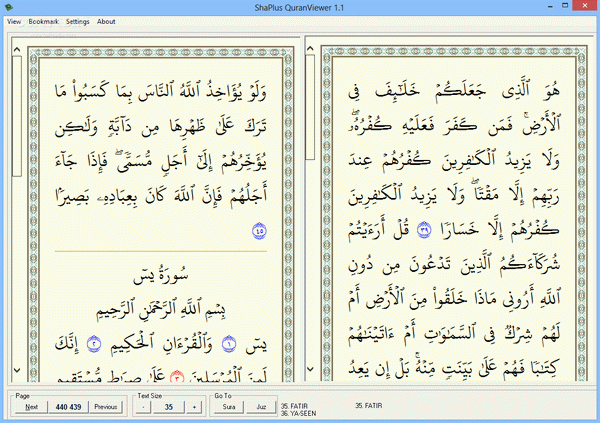 ShaPlus QuranViewer 1.1
View Bookmark Settings About
هُوَ ٱلَّذِى جَعَلَكُمْ خَلَـٰٓئِفَ فِى
ٱلْأَرْضِ ۚ فَمَن كَفَرَ فَعَلَيْهِ كُفْرُهُۥ ۖ
وَلَا يَزِيدُ ٱلْكَـٰفِرِينَ كُفْرُهُمْ عِندَ
رَبِّهِمْ إِلَّا مَقْتًا ۖ وَلَا يَزِيدُ ٱلْكَـٰفِرِينَ
كُفْرُهُمْ إِلَّا خَسَارًا ٣٩ قُلْ أَرَءَيْتُمْ
شُرَكَآءَكُمُ ٱلَّذِينَ تَدْعُونَ مِن دُونِ
ٱللَّهِ أَرُونِى مَاذَا خَلَقُوا۟ مِنَ ٱلْأَرْضِ أَمْ
لَهُمْ شِرْكٌ فِى ٱلسَّمَـٰوَٰتِ أَمْ ءَاتَيْنَـٰهُمْ
كِتَـٰبًا فَهُمْ عَلَىٰ بَيِّنَتٍ مِّنْهُ ۚ بَلْ إِن يَعِدُ
وَلَوْ يُؤَاخِذُ ٱللَّهُ ٱلنَّاسَ بِمَا كَسَبُوا۟ مَا
تَرَكَ عَلَىٰ ظَهْرِهَا مِن دَآبَّةٍ وَلَـٰكِن
يُؤَخِّرُهُمْ إِلَىٰٓ أَجَلٍ مُّسَمًّى ۖ فَإِذَا جَآءَ
أَجَلُهُمْ فَإِنَّ ٱللَّهَ كَانَ بِعِبَادِهِۦ بَصِيرًۢا
٤٥
سُورَةُ يسٓ
بِسْمِ ٱللَّهِ ٱلرَّحْمَـٰنِ ٱلرَّحِيمِ
يسٓ ١ وَٱلْقُرْءَانِ ٱلْحَكِيمِ ٢ إِنَّكَ
لَمِنَ ٱلْمُرْسَلِينَ ٣ عَلَىٰ صِرَٰطٍ مُّسْتَقِيمٍ
Page Text Size Go To
Next 440 439 Previous - 35 + Sura Juz
35. FATIR 35. FATIR
36. YA-SEEN